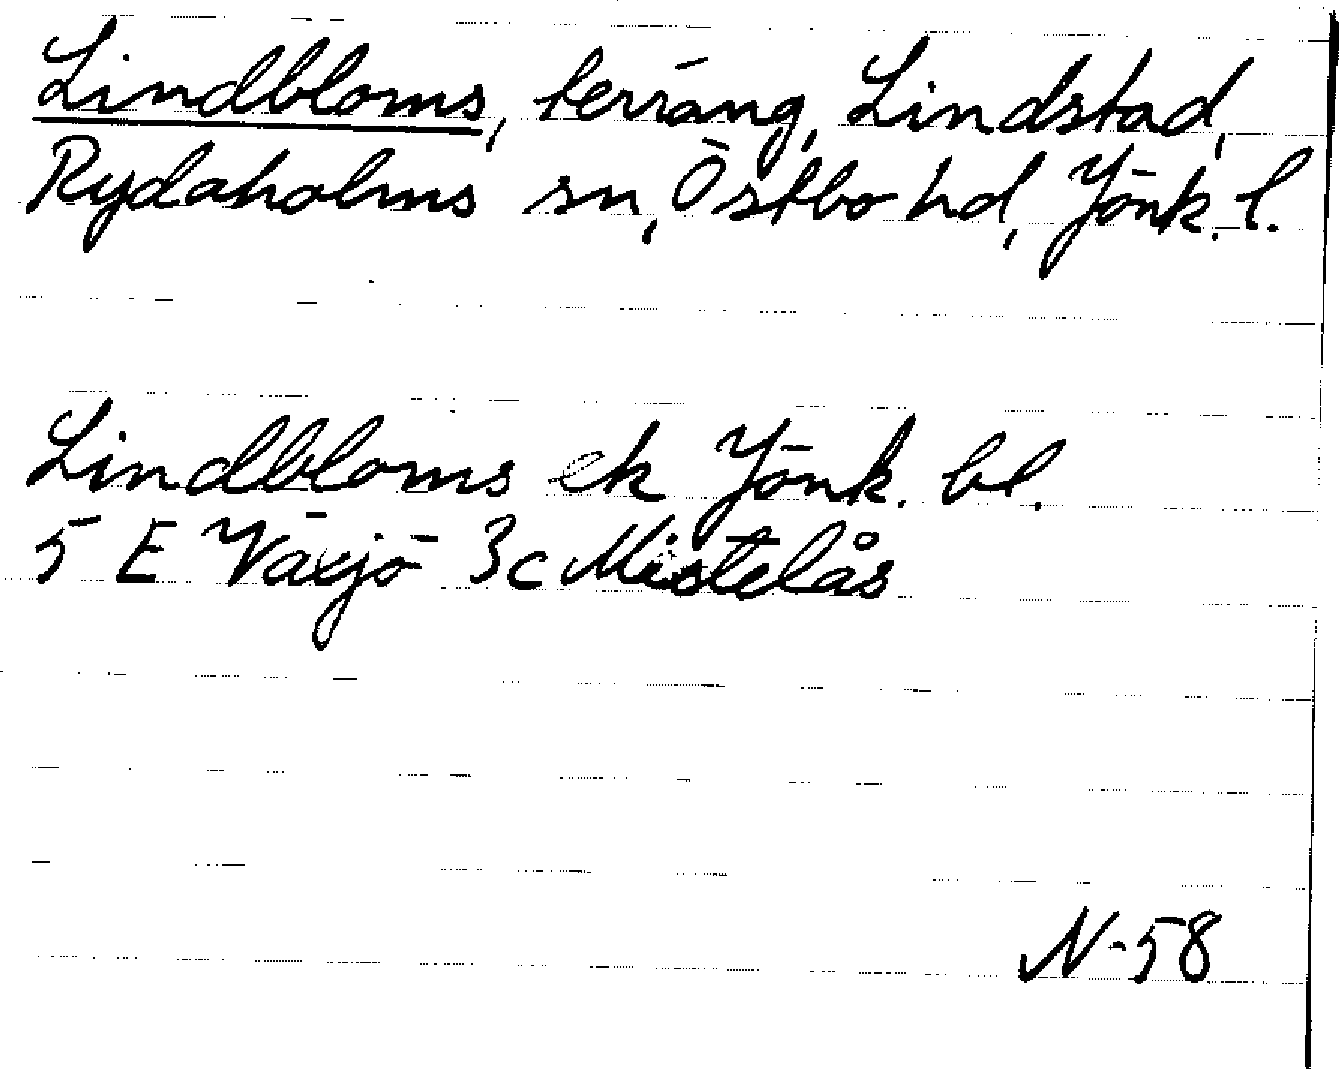 Lindbloms, terräng, Lindstad,
Rydaholms sn, Östbo hd, Jönk. l.
Lindbloms ek Jönk. bl.
5 E Växjö 3c Mistelås
N-58